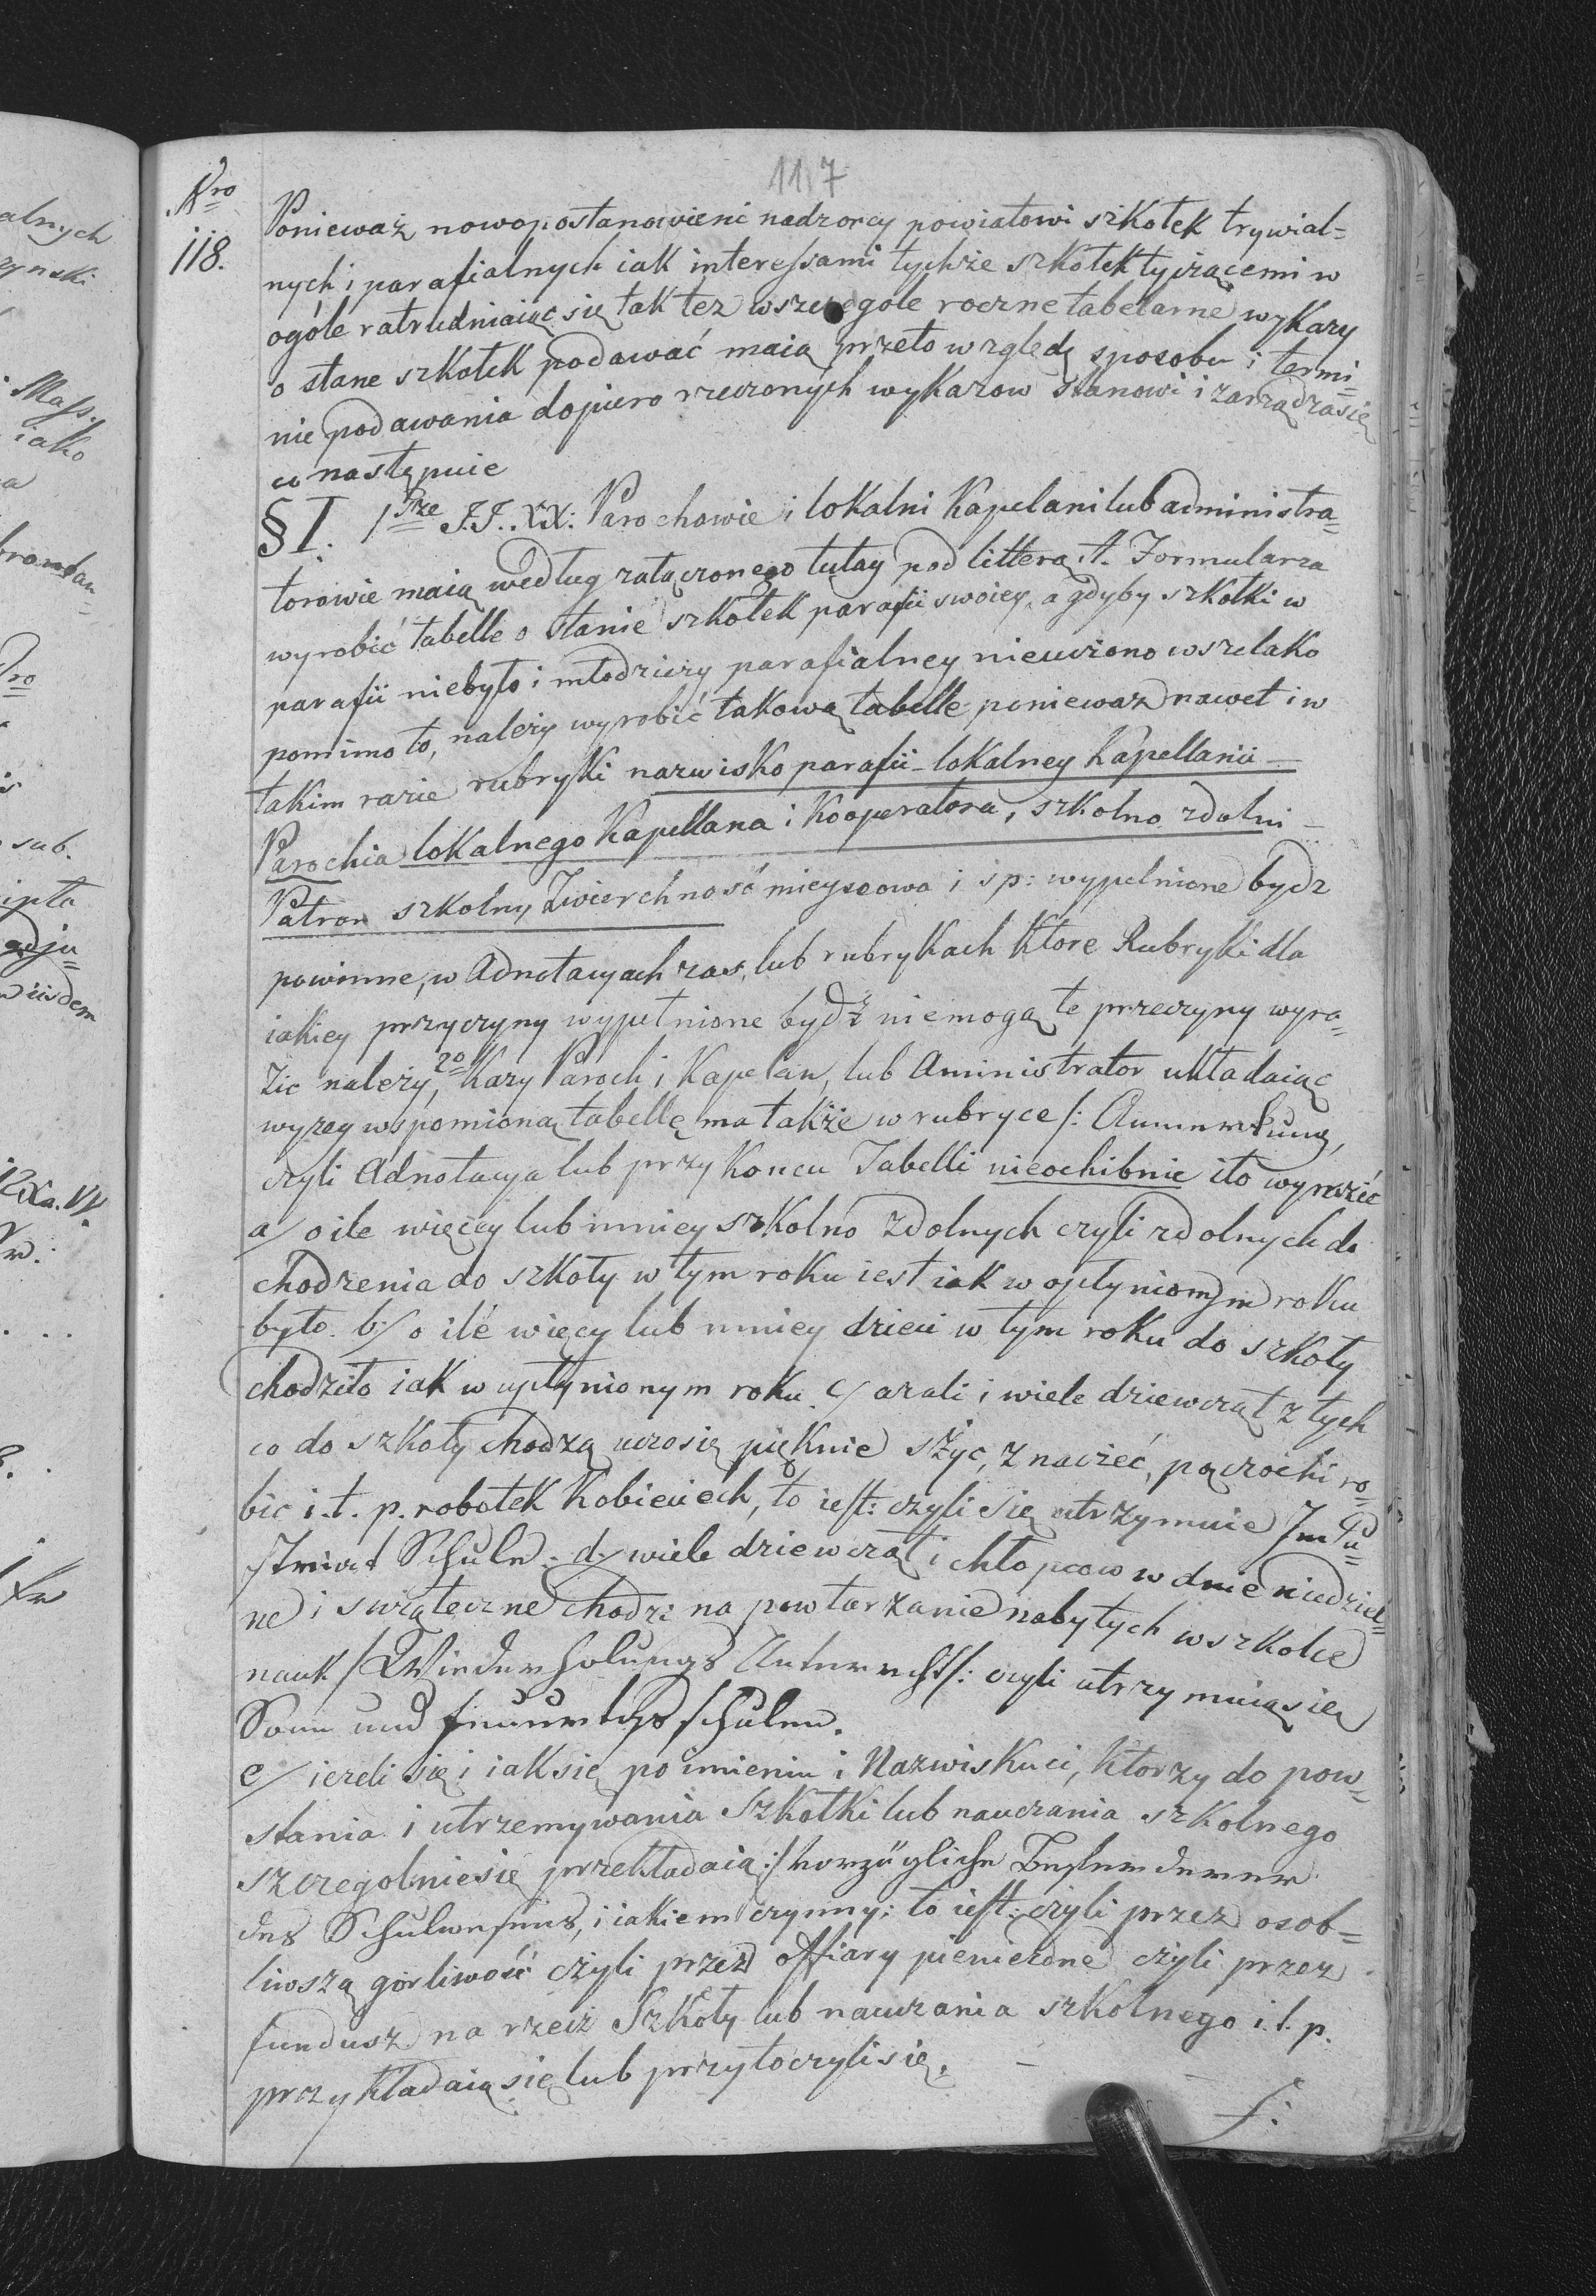 117
Nro
118.
Ponieważ nowopostanowieni nadzorcy powiatowi szkołek trywial=
nych i parafialnych iak interessami tychże szkołek tyczącemi w
ogóle zatrudniaiąc się tak też wszczegole roczne tabelarne wykazy
o stane szkołek podawać maią przeto względę sposobu i termi=
nie podawania dopiero rzeczonych wykazow stanowi i zarządza się
co następuie
§ I. 1sze J.J. XX: Parochowie i lokalni Kapelani lub administra=
torowie maią według załączonego tutay pod litterą A. Formularza
wyrobić tabelle o stanie szkołek parafii swoiey, a gdyby szkołki w
parafii niebyło i młodzieży parafialney nieuczono wszelako
pomimo to, należy wyrobić takową tabelle ponieważ nawet i w
takim razie rubryki nazwisko parafii - lokalney Kapellanii -
Parochia lokalnego Kapellana i Kooperatora, szkolno zdolni -
Patron szkolny Zwierchność mieyscowa i sp: wypełnione bydz
powinne, w Adnotacyach zas, lub rubrykach ktore Rubryki dla
iakiey przyczyny wypełnione bydź niemogą te przeczyny wyra=
zic należy, 2o Kazy Paroch i Kapelan, lub Aministrator układaiąc
wyzey wspomioną tabellę ma także w rubryce /: Anmerkung,
czyli Adnotacya lub przy Koncu Tabelli nieochibnie ito wyrazić
a/ o ile więcey lub mniey szkolno zdolnych czyli zdolnych do
chodzenia do szkoły w tym roku iest iak w opłynionym roku
było. b/ o ilé więcy lub mniey dzieci w tym roku do szkoły
chodziło iak w upłynionym roku. c/ azali i wiele dziewcząt z tych
co do szkoły chodzą uczo się pięknie szyc, znaczéć, pączochi ro=
bic i. t. p. robotek Kobieciech, to iest: czyli się utrzymuie Indu=
striat Schule. d/ wiele dziewcząt i chłopcow w dnie niedziel=
ne i swiąteczne chodzi na powtarzanie nabytych w szkolce
nauk /: Wiederholungs Unterricht /: czyli utrzymuią się
Sonn und feuertags schulen.
e/ iezeli się i iak się po imieniu i Nazwisku ci, ktorzy do pow=
stania i utrzemywania Szkołki lub nauczania szkolnego
szczegolnie się przekładaią :/ vorzügliche Beförderer
des Schulwesens, i iakiem czynny: to iest: czyli przez osob=
liwszą gorliwość czyli przez offiary pienieżdne czyli przez
fundusz na rzecz Szkoły lub nauczania szkolnego i. t. p.
przykładaią się lub przyłoczyli się. -
f: